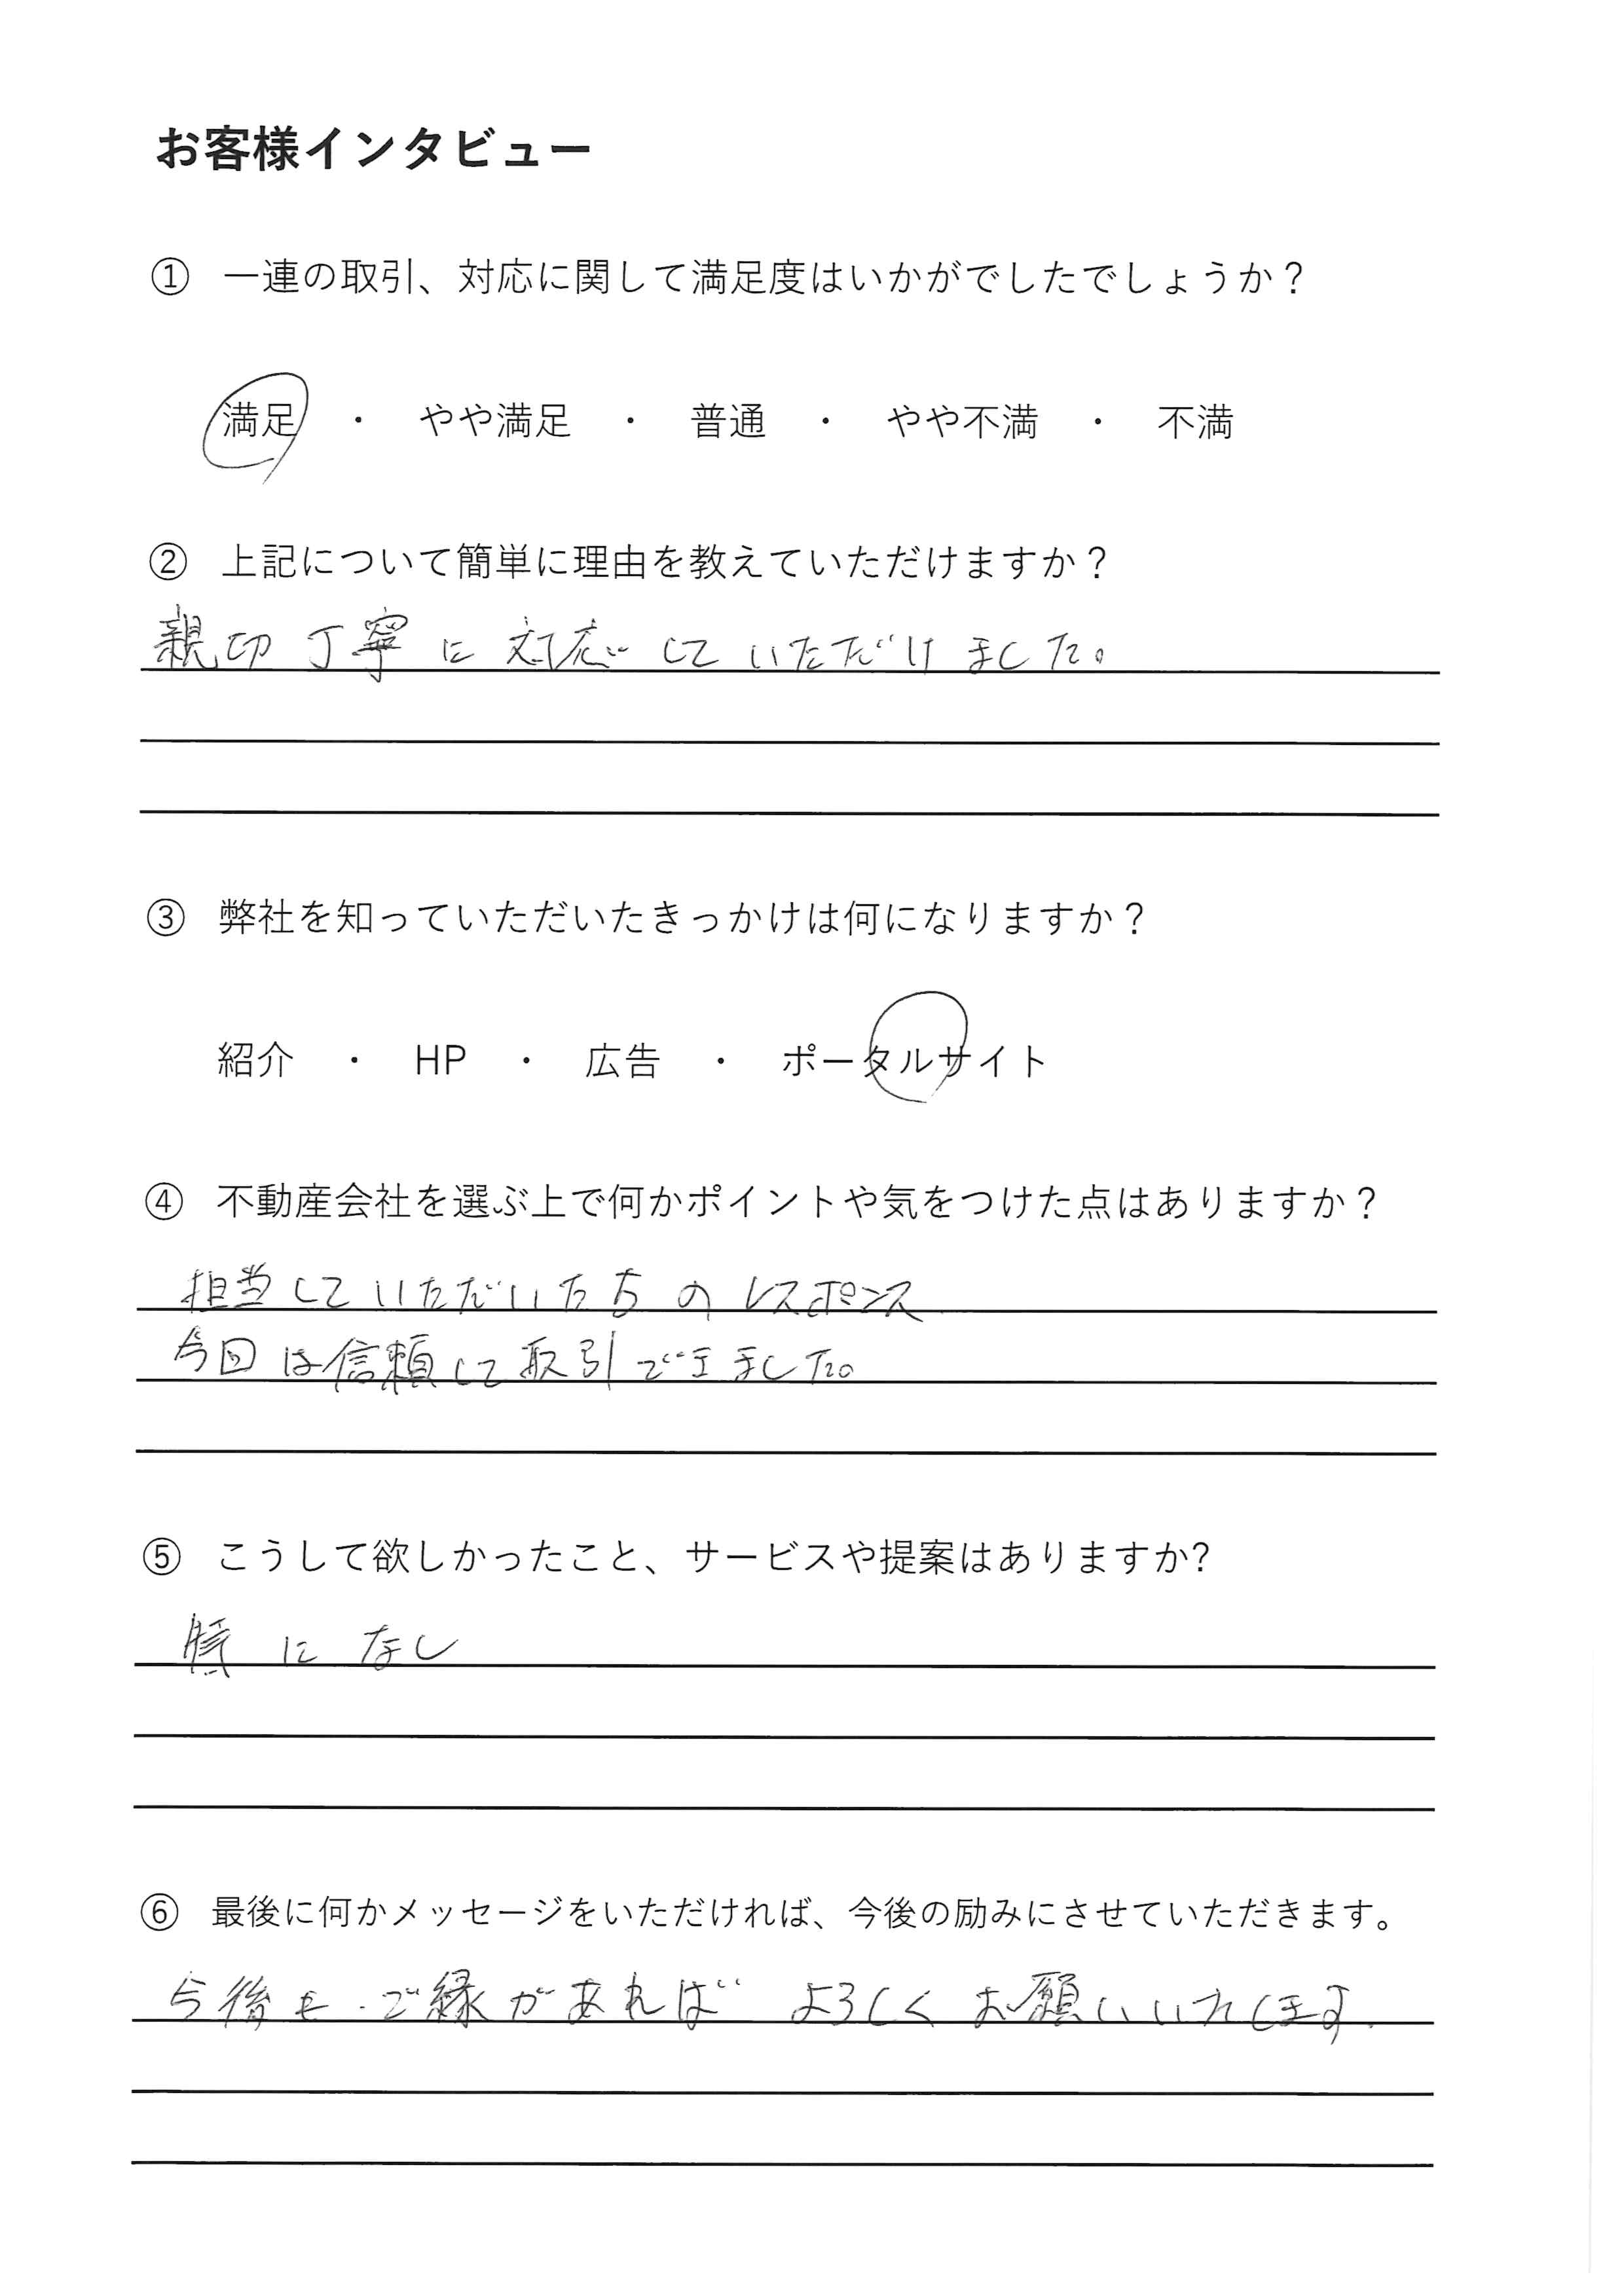 お客様インタビュー
① 一連の取引、対応に関して満足度はいかがでしたでしょうか？
満足 ・ やや満足 ・ 普通 ・ やや不満 ・ 不満
② 上記について簡単に理由を教えていただけますか？
親切丁寧に対応していただけました。
③ 弊社を知っていただいたきっかけは何になりますか？
紹介 ・ HP ・ 広告 ・ ポータルサイト
④ 不動産会社を選ぶ上で何かポイントや気をつけた点はありますか？
担当していただいた方のレスポンス
今回は信頼して取引できました。
⑤ こうして欲しかったこと、サービスや提案はありますか?
になし
⑥ 最後に何かメッセージをいただければ、今後の励みにさせていただきます。
今後もご縁があればよろしくお願いいたします.